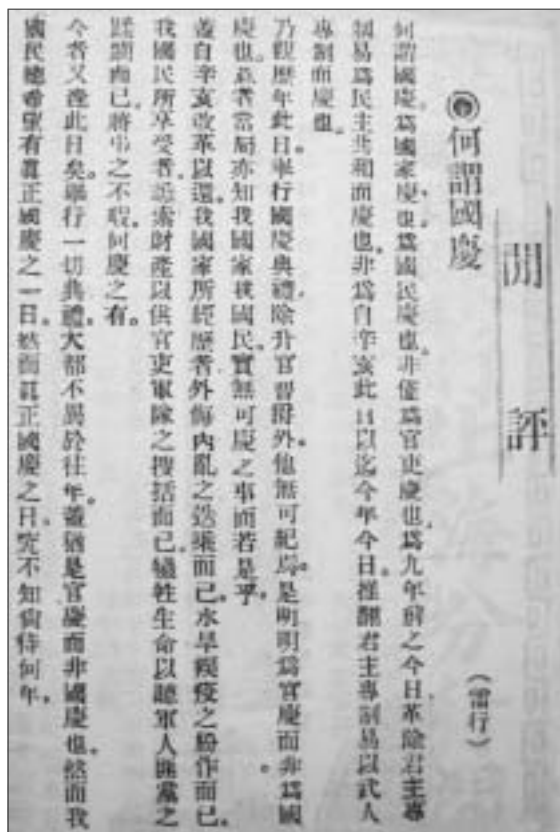 閒評
◉何謂國慶
（雷行）
何謂國慶。爲國家慶也。爲國民慶也。非僅爲官吏慶也。爲九年前之今日。革除君主專
制易爲民主共和而慶也。非爲自辛亥此日以迄今年今日。推翻君主專制易以武人
專制而慶也。
乃觀歷年此日。舉行國慶典禮。除升官晋爵外。他無可紀焉。是明明爲官慶而非爲國
慶也。意者當局亦知我國家我國民。實無可慶之事而若是乎。
蓋自辛亥改革以還。我國家所經歷者外侮內亂之迭乘而已。水旱疫之紛作而已。
我國民所享受者。財產以供官吏軍隊之搜括而已。犧牲生命以聽軍人匪黨之
而已。將弔之不暇。何慶之有。
今者又逢此日矣。舉行一切典禮。大都不異於往年。蓋猶是官慶而非國慶也。然而我
國民總希望有眞正國慶之一日。然而眞正國慶之日。究不知尙待何年。